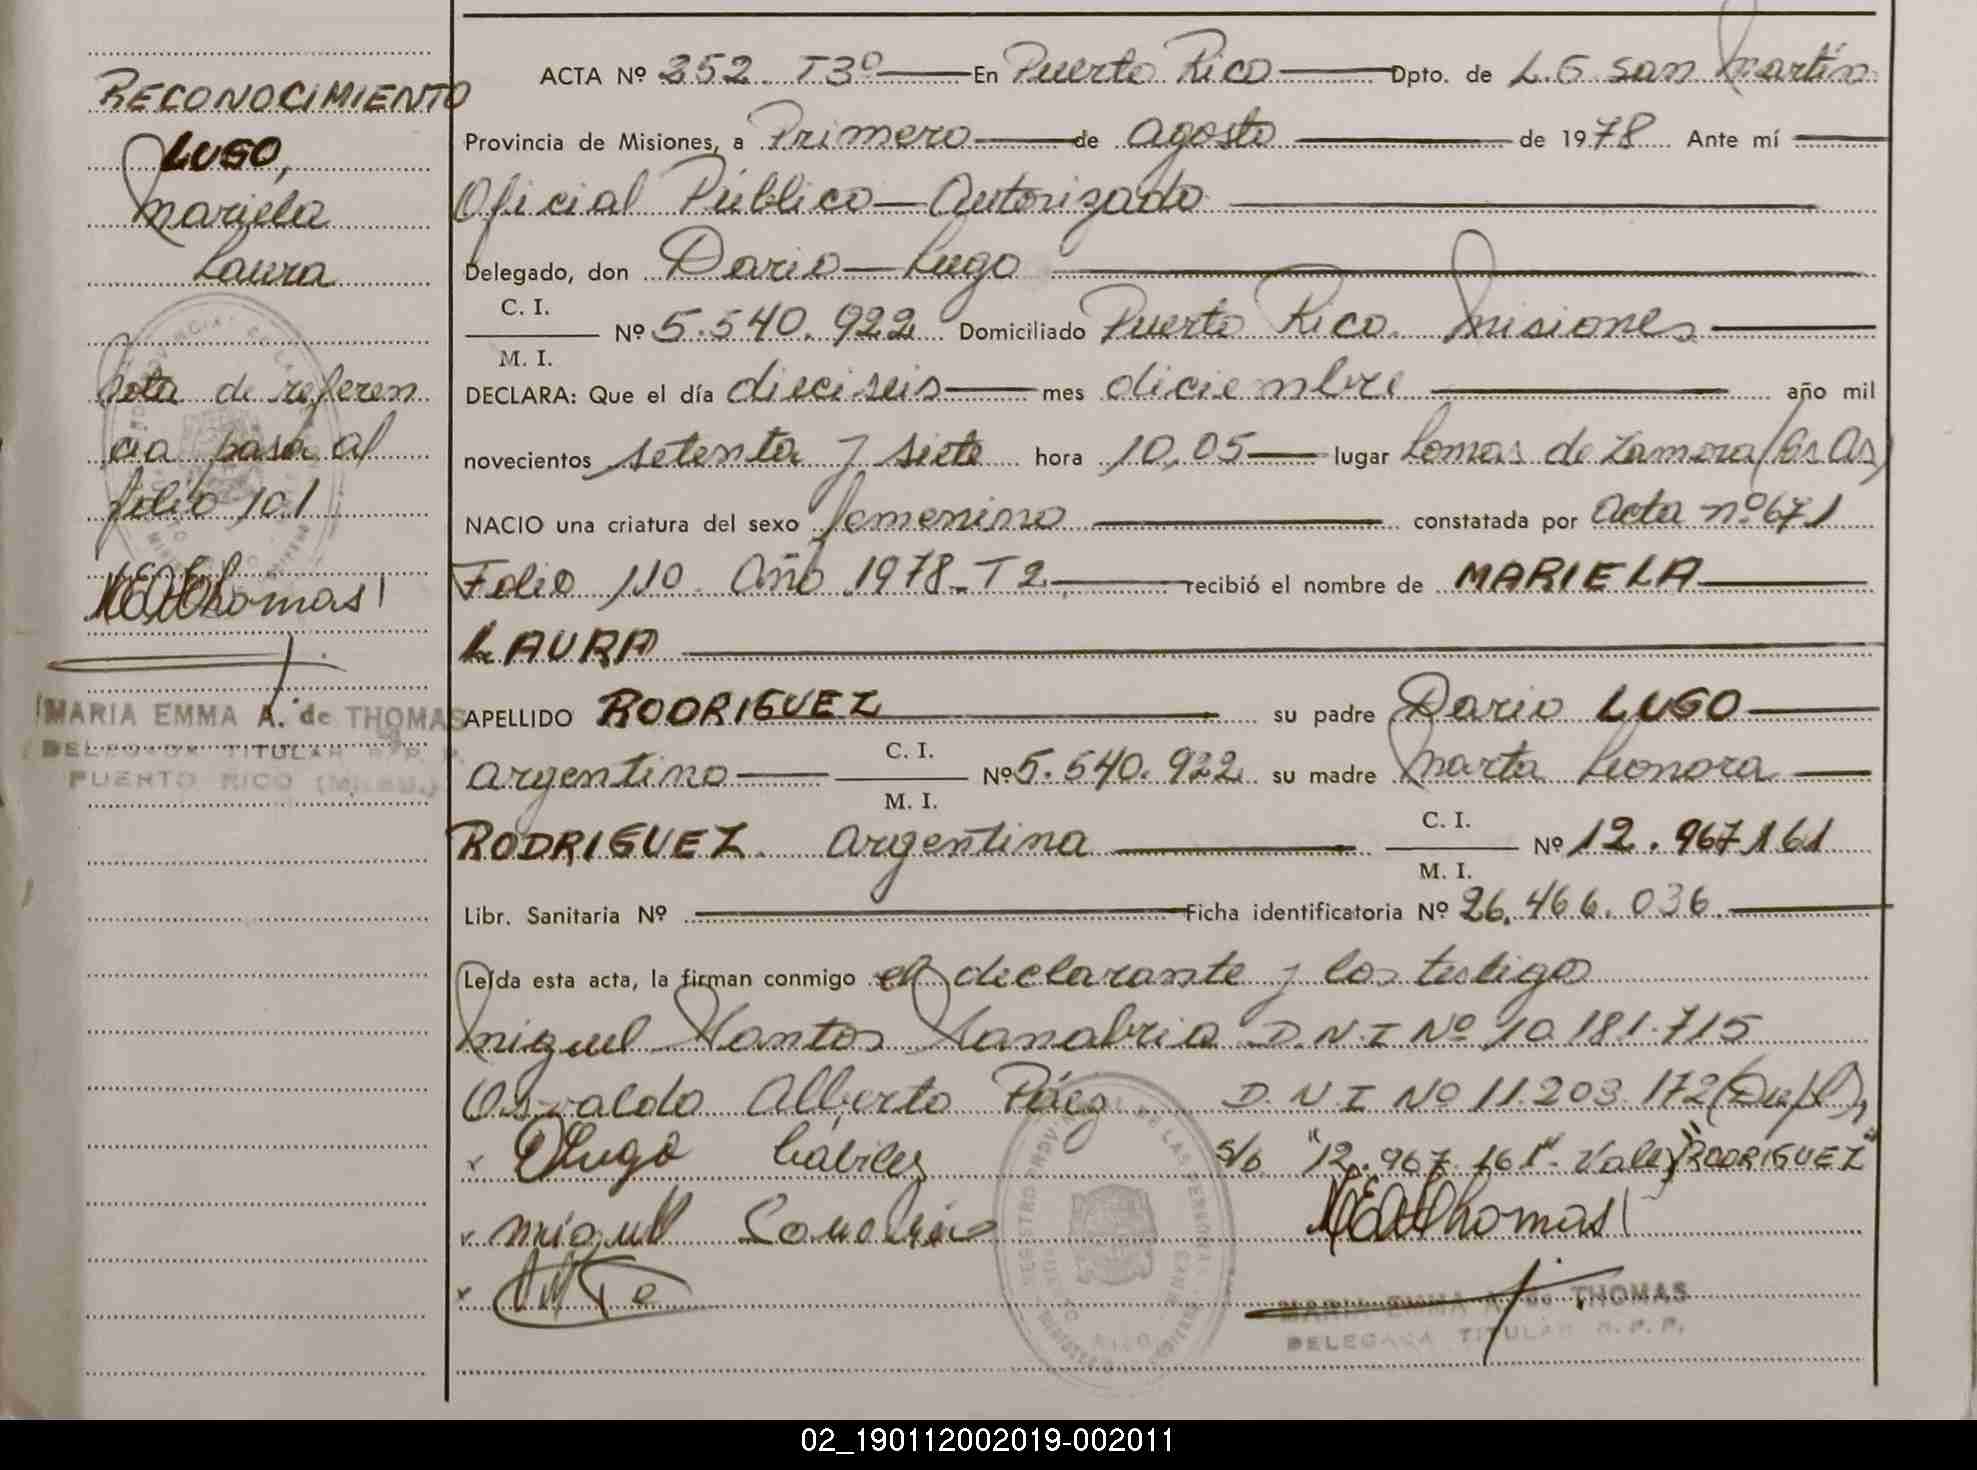 RECONOCIMIENTO
LUGO,
Mariela
Laura
Nota de referen
cia pasa al
folio 101
MEAdeThomas
MARIA EMMA A. de THOMAS
DELEGADA TITULAR R. P. P.
PUERTO RICO (Mnes.)
ACTA Nº 252 T3º En Puerto Rico Dpto. de L.G San Martín
Provincia de Misiones, a Primero de agosto de 1978 Ante mí
Oficial Público Autorizado
Delegado, don Dario Lugo
C. I.
M. I.
Nº 5.540.922 Domiciliado Puerto Rico Misiones
DECLARA: Que el día dieciseis mes diciembre año mil
novecientos setenta y siete hora 10,05 lugar Lomas de Zamora (Bs As)
NACIO una criatura del sexo femenino constatada por Acta nº 671
Folio 110 Año 1978-T2 recibió el nombre de MARIELA
LAURA
APELLIDO RODRIGUEZ su padre Dario LUGO
argentino C. I. M. I. Nº 5.540.922 su madre Marta Leonora
RODRIGUEZ argentina C. I. M. I. Nº 12.967.161
Libr. Sanitaria Nº Ficha identificatoria Nº 26.466.036
Leída esta acta, la firman conmigo el declarante y los testigos
Miguel Santos Sanabria D.N.I Nº 10.181.715
Osvaldo Alberto Páez D.N.I Nº 11.203.172 (Dupl),
x DLugo s/b "12.967.161" Vale y "RODRIGUEZ"
x Miguel Sanabria MEAdeThomas
x
MARIA EMMA A. de THOMAS
DELEGADA TITULAR R. P. P.
02_190112002019-002011